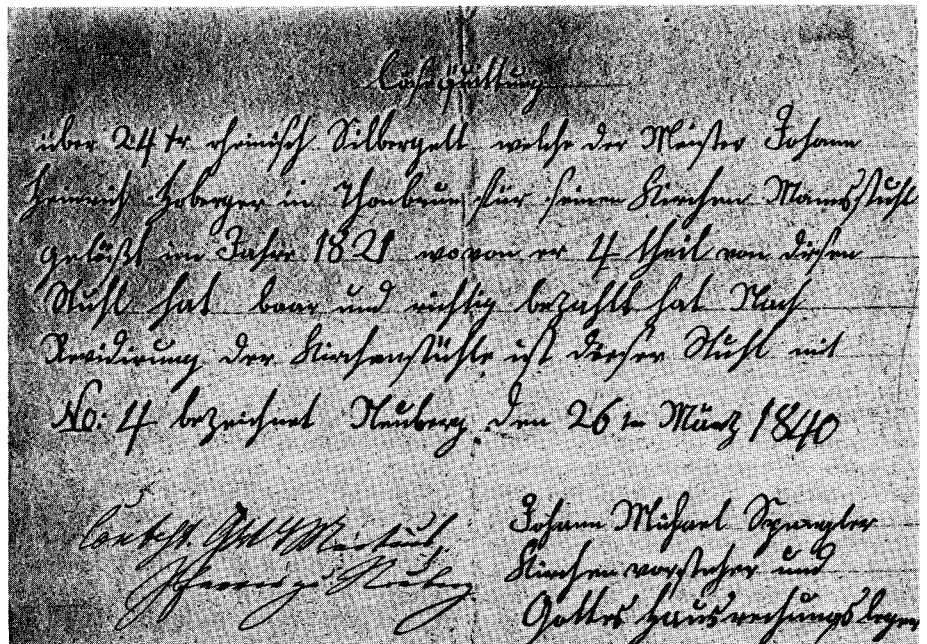 Lösequittung
über 24 kr rheinisch Silbergelt welche der Meister Johann
Heinrich Hoberger in Thonbrun für seinen Kirchen Mannsstuhl
gelößt im Jahr 1821 wovon er 4 theil von diesen
Stuhl hat baar und richtig bezahlt hat Nach
Revidirung der Kirchenstühle ist dieser Stuhl mit
No: 4 bezeichnet Neuberg den 26 tn März 1840
Pfarrer zu Neuberg
Johann Michael Spengler
Kirchenvorsteher und
Gottes Hausrechungsleger